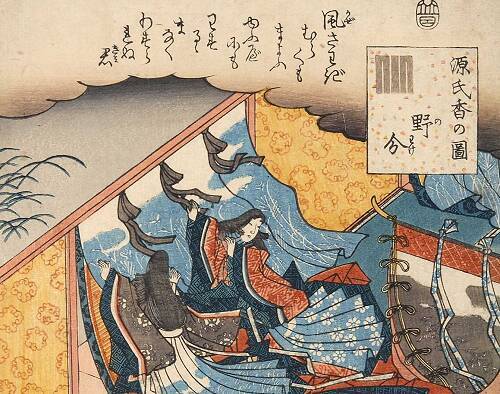 源氏香の圖
野分
風さわぎ
むらくも
まよふ
にも
わする
まなく
わすら
れぬ
君